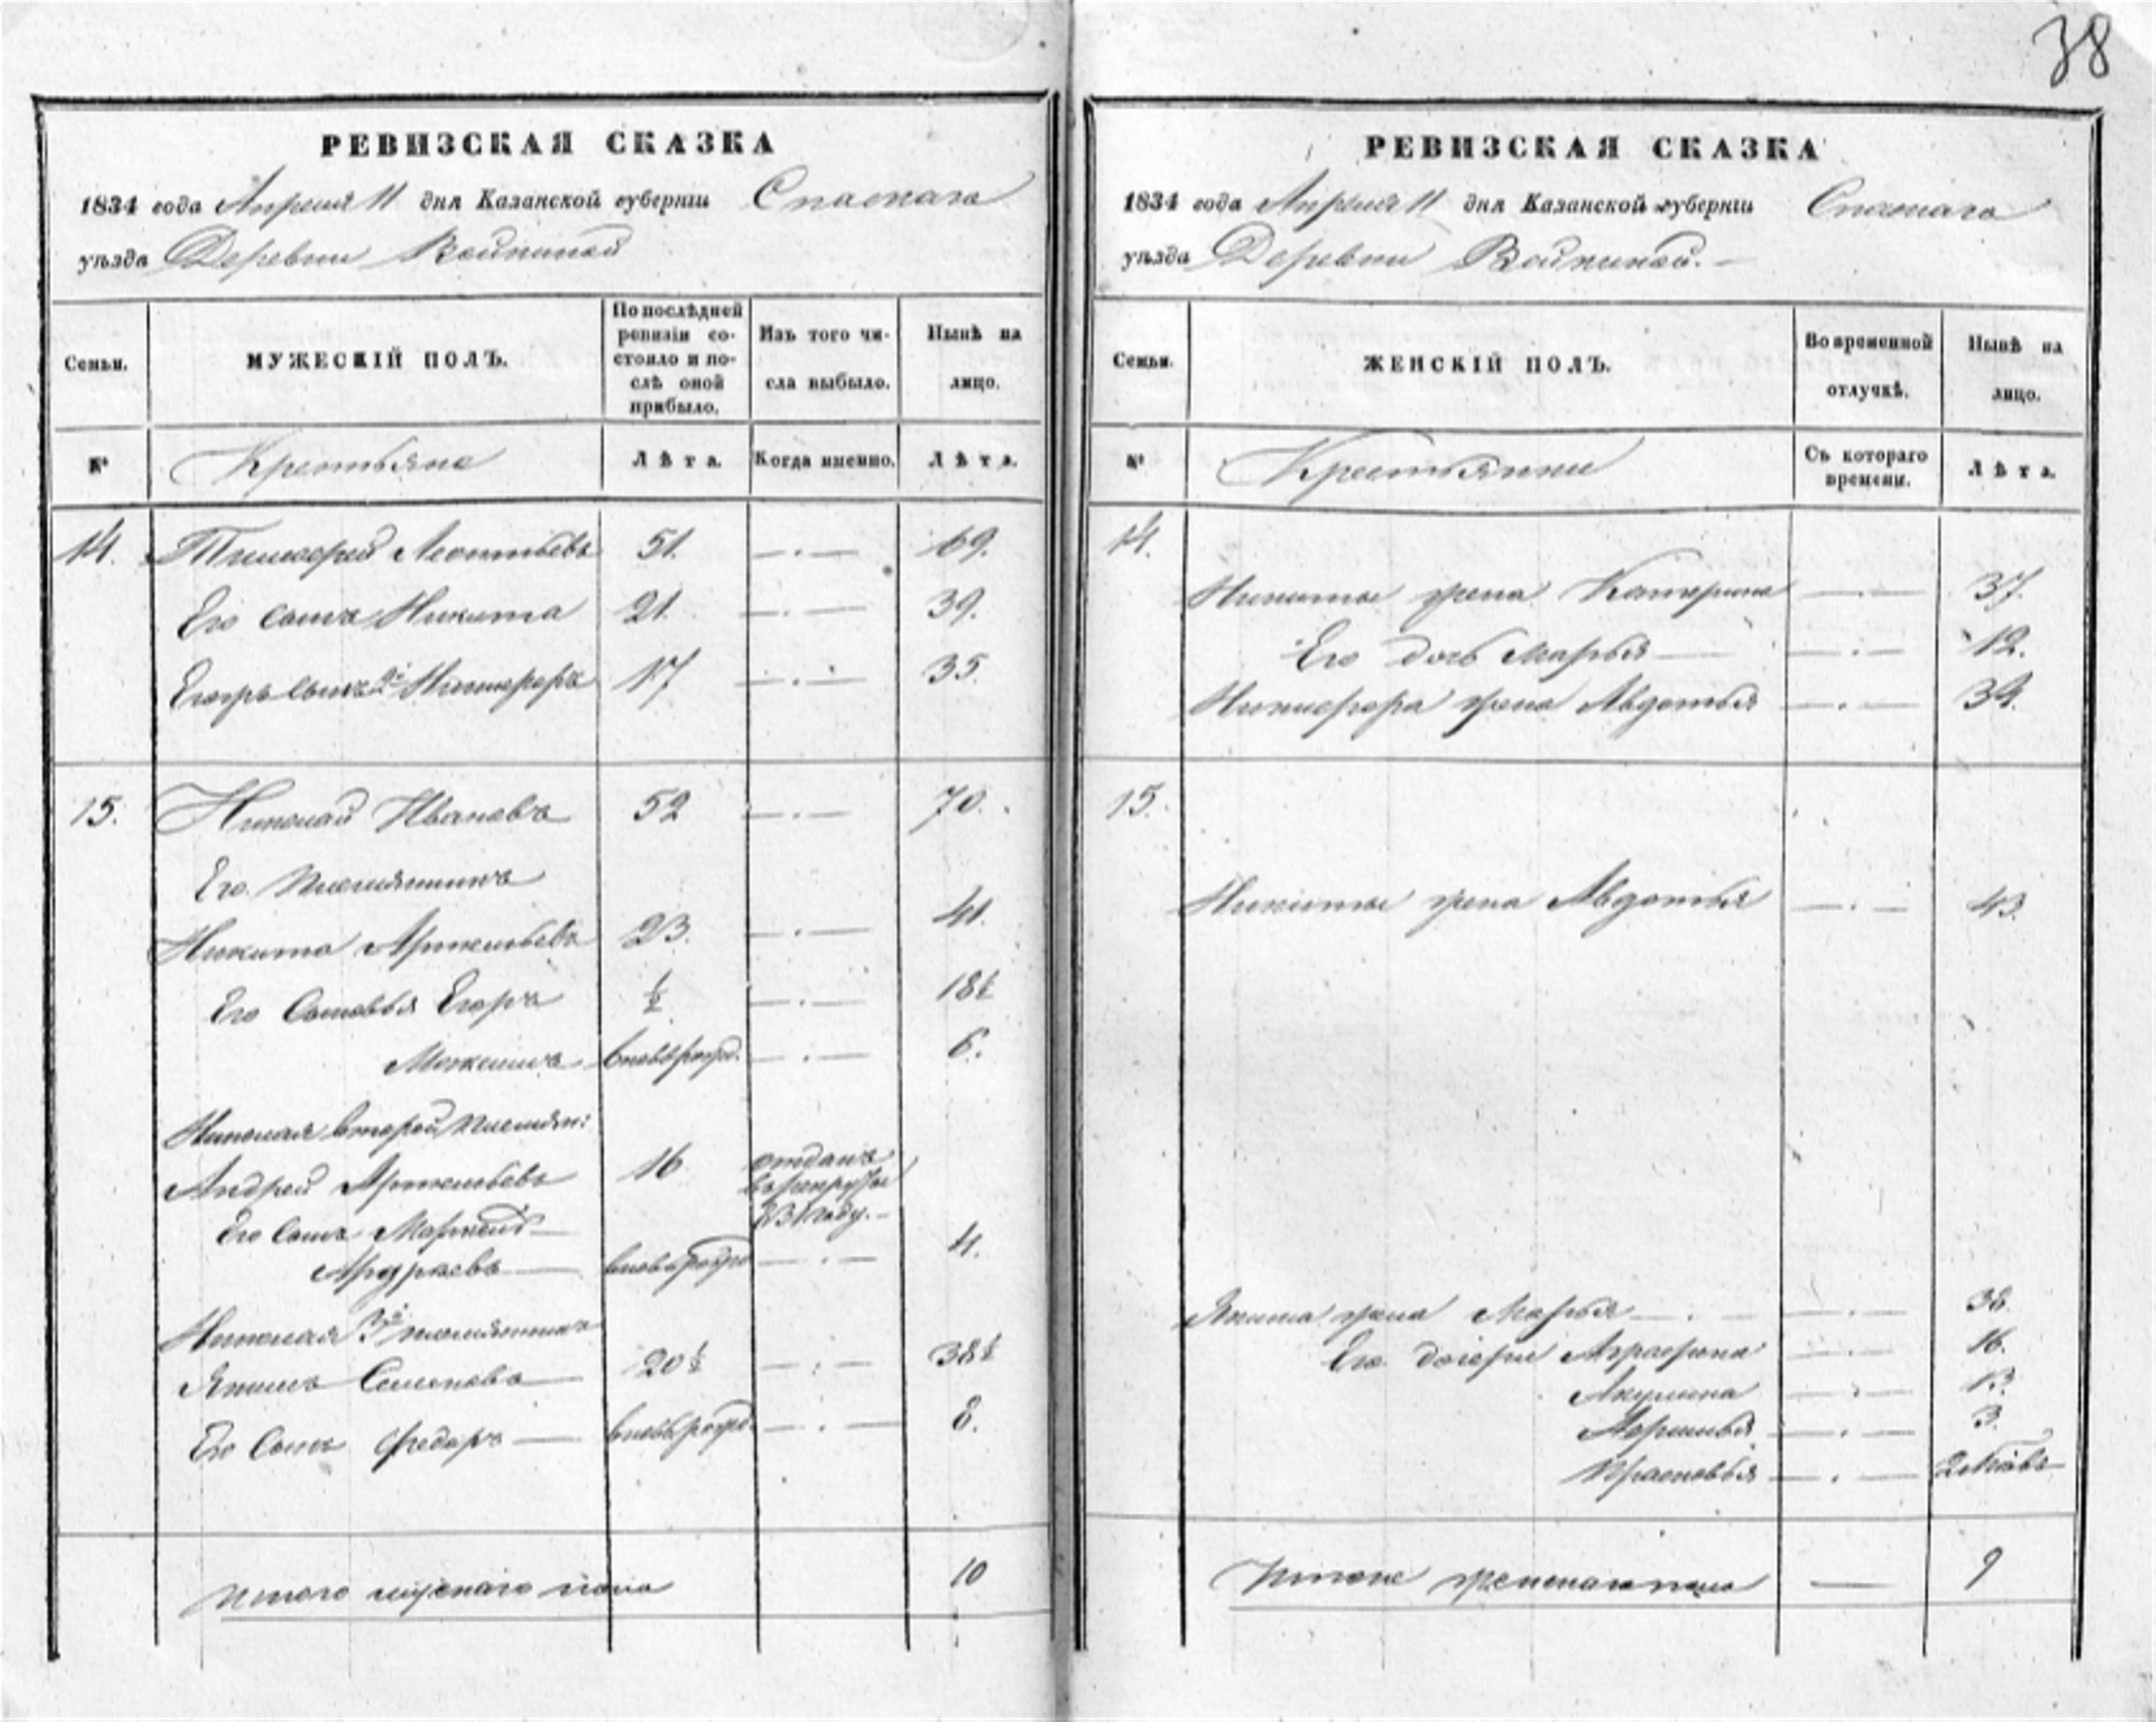 38
РЕВИЗСКАЯ СКАЗКА
1834 года Апреля 11 дня Казанской губерніи Спаскаго
уѣзда Деревни Войкиной
Семьи.
МУЖЕСКІЙ ПОЛЪ.
По послѣдней ревизіи состояло и послѣ оной прибыло.
Изъ того числа выбыло.
Нынѣ на лицо.
№
Крестьяне
Лѣта.
Когда именно.
Лѣта.
14. Тимофей Леонтьевъ 51. 69.
Его сынъ Никита 21. 39.
Егоръ сынъ 2й Никифоръ 17 35.
15. Николай Ивановъ 52 70.
Его Племянникъ
Никита Артемьевъ 23. 41.
Его Сыновья Егоръ ½ 18½
Максимъ вновьрожд. 6.
Николая второй племян:
Андрей Артемьевъ 16 отданъ
въ рекруты
831 году.
Его Сынъ Маркелъ
Андреевъ вновьрожд 4.
Николая 3й племянникъ
Якимъ Семеновъ 20½ 38½
Его Сынъ Федоръ вновьрожд. 8.
Итого мужскаго пола 10
РЕВИЗСКАЯ СКАЗКА
1834 года Апреля 11 дня Казанской губерніи Спаскаго
уѣзда Деревни Войкиной.
Семьи.
ЖЕНСКІЙ ПОЛЪ.
Во временной отлучкѣ.
Нынѣ на лицо.
№
Крестьянки
Съ котораго времени.
Лѣта.
14.
Никиты жена Катерина 37.
Его дочь Марья 12.
Никифора жена Авдотья 34.
15.
Никиты жена Авдотья 43.
Якима жена Марья 38.
Его дочери Аграфена 16.
Акулина 13.
3.
Прасковья
Итого женскаго пола 9